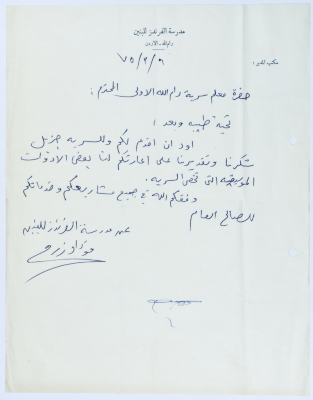 مدرسة الفرندز للبنين
رام الله - الأردن
مكتب المدير:
٧٥/٦/٩
حضرة معلم سرية رام الله الاولى المحترم:
تحية طيبه وبعد؛
اود ان اقدم لكم وللسريه جزيل
شكرنا وتقديرنا على اعارتكم لنا بعض الادوات
الموسيقيه التي تخص السريه.
وفقكم الله في جميع مشاريعكم وخدماتكم
للصالح العام
عن مدرسة الفرندز للبنين